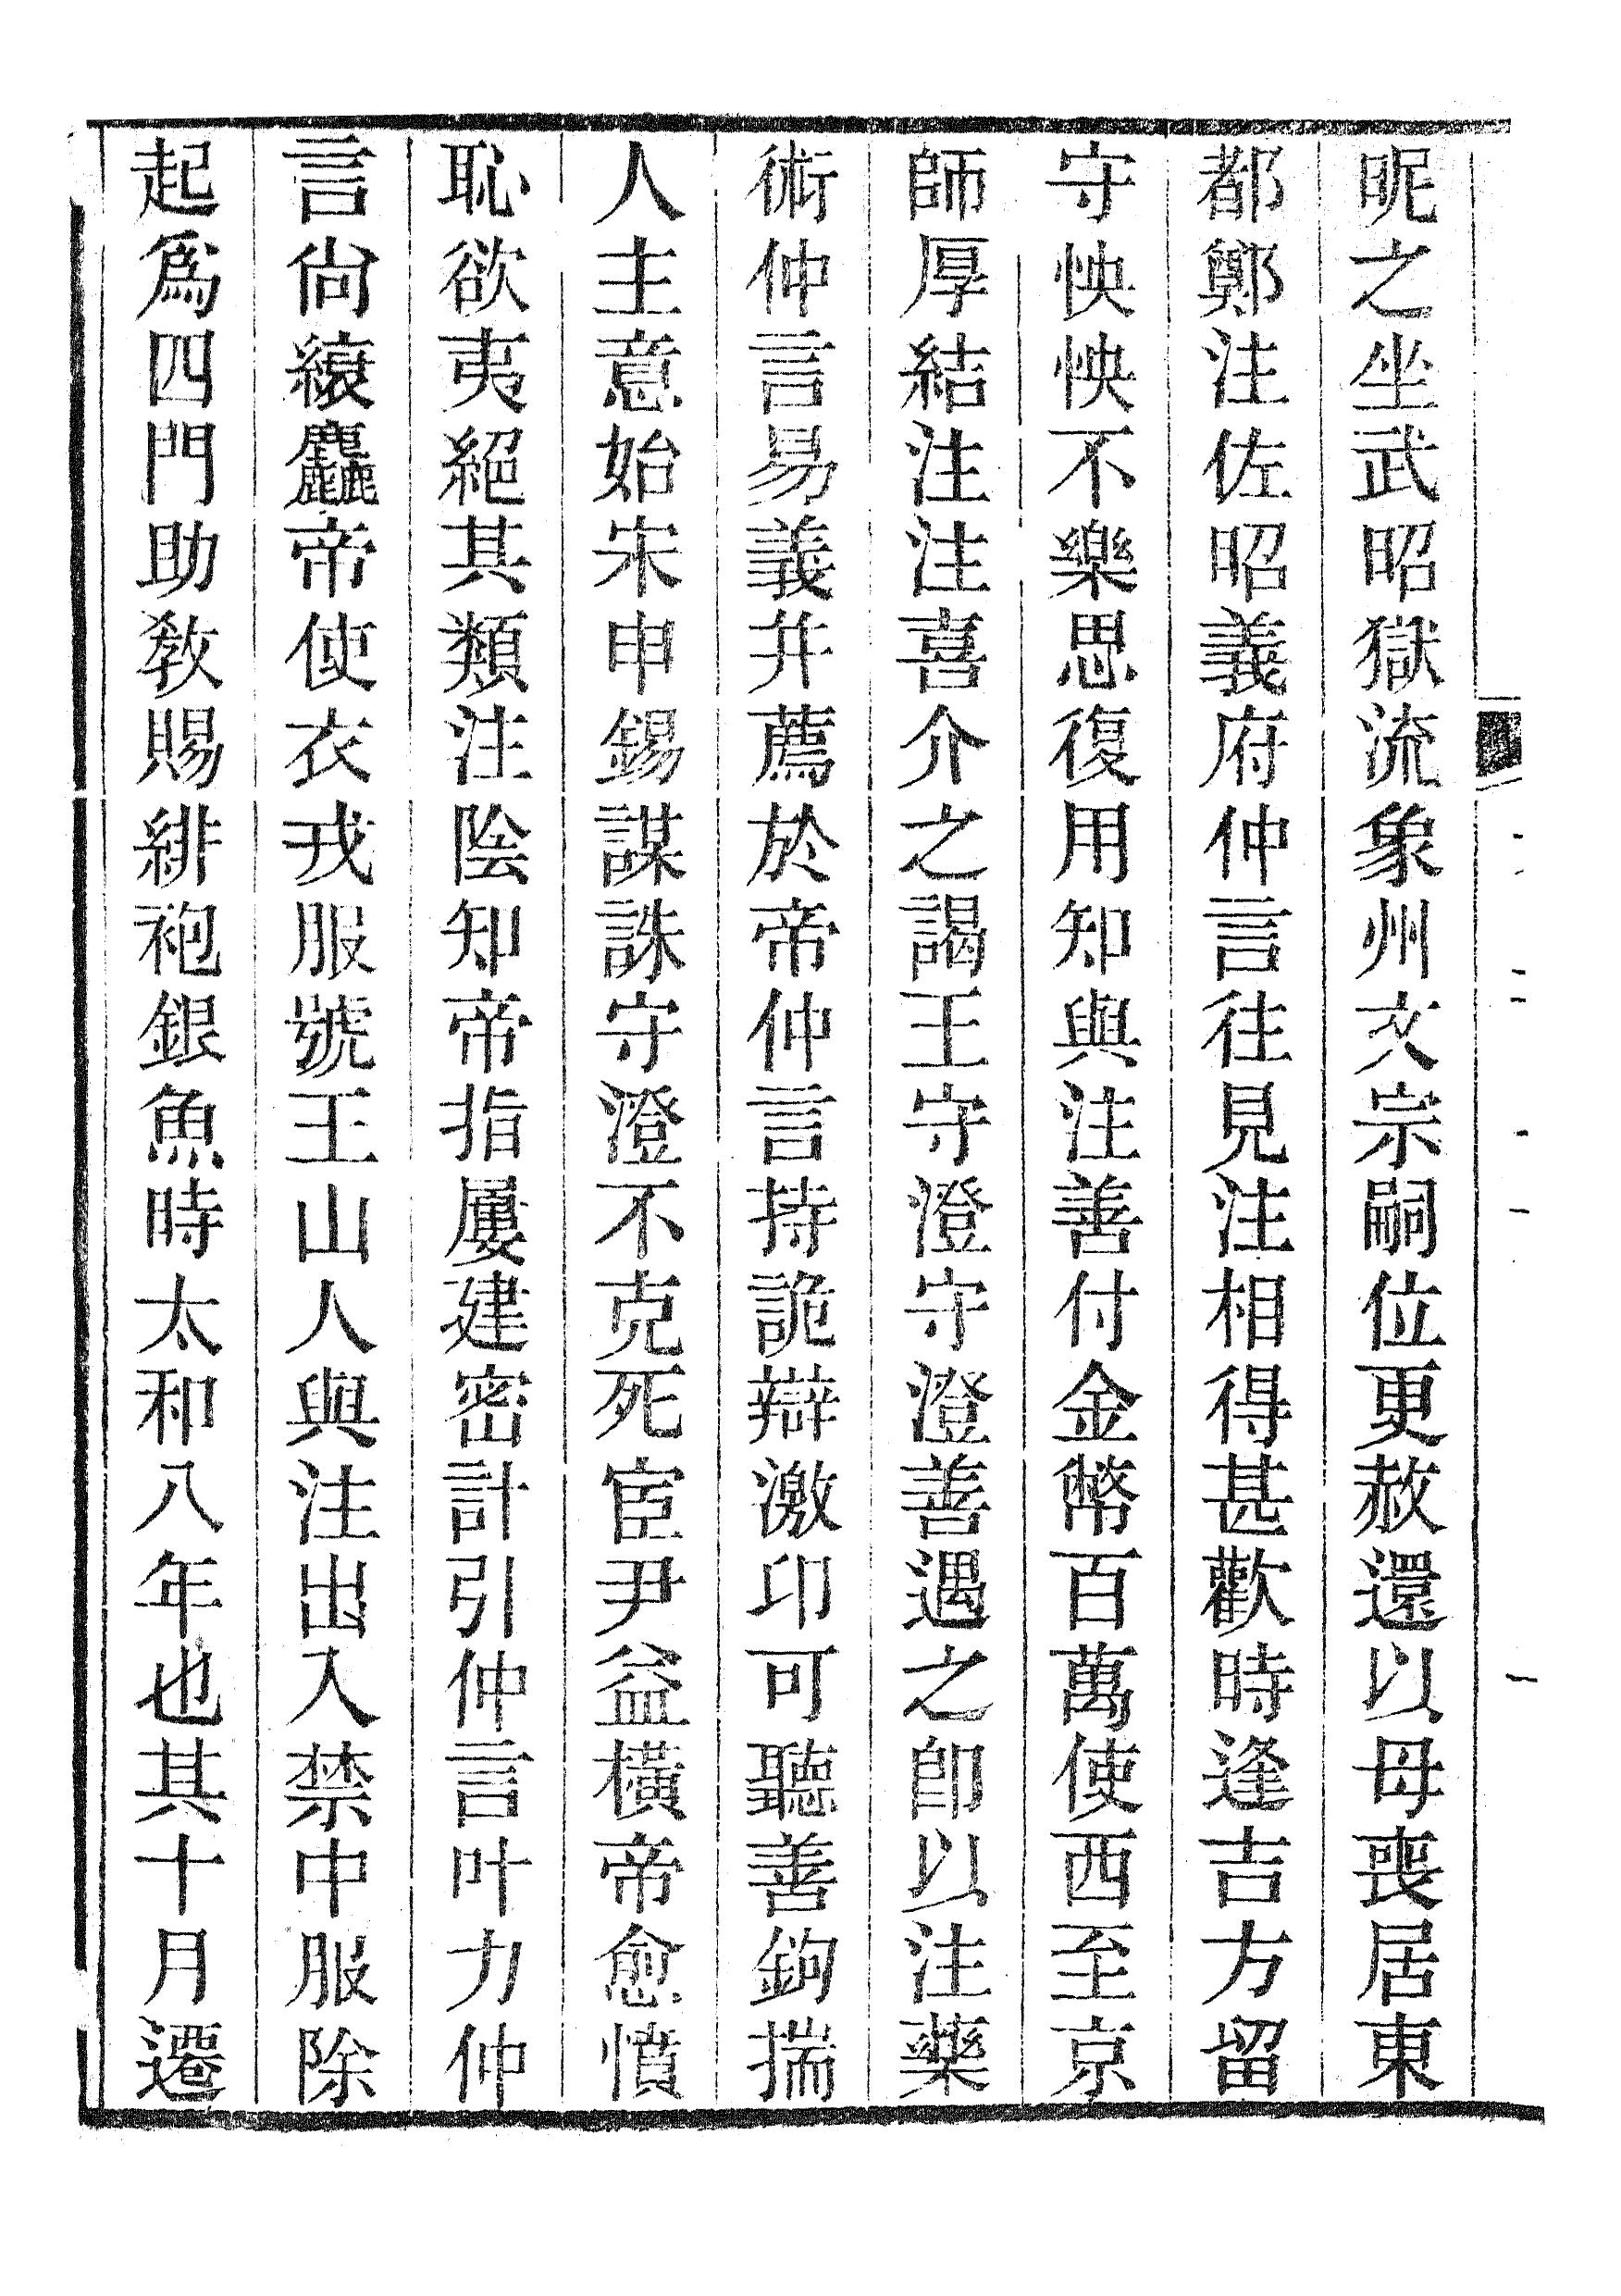 昵之坐武昭獄流象州文宗嗣位更赦還以母喪居東
都鄭注佐昭義府仲言往見注相得甚歡時逢吉方留
守怏怏不樂思復用知與注善付金幣百萬使西至京
師厚結注注喜介之謁王守澄守澄善遇之卽以注藥
術仲言易義幷薦於帝仲言持詭辯激卬可聽善鉤揣
人主意始宋申錫謀誅守澄不克死宦尹益橫帝愈憤
恥欲夷絕其類注陰知帝指屢建密計引仲言叶力仲
言尙縗麤帝使衣戎服號王山人與注出入禁中服除
起爲四門助敎賜緋袍銀魚時太和八年也其十月遷